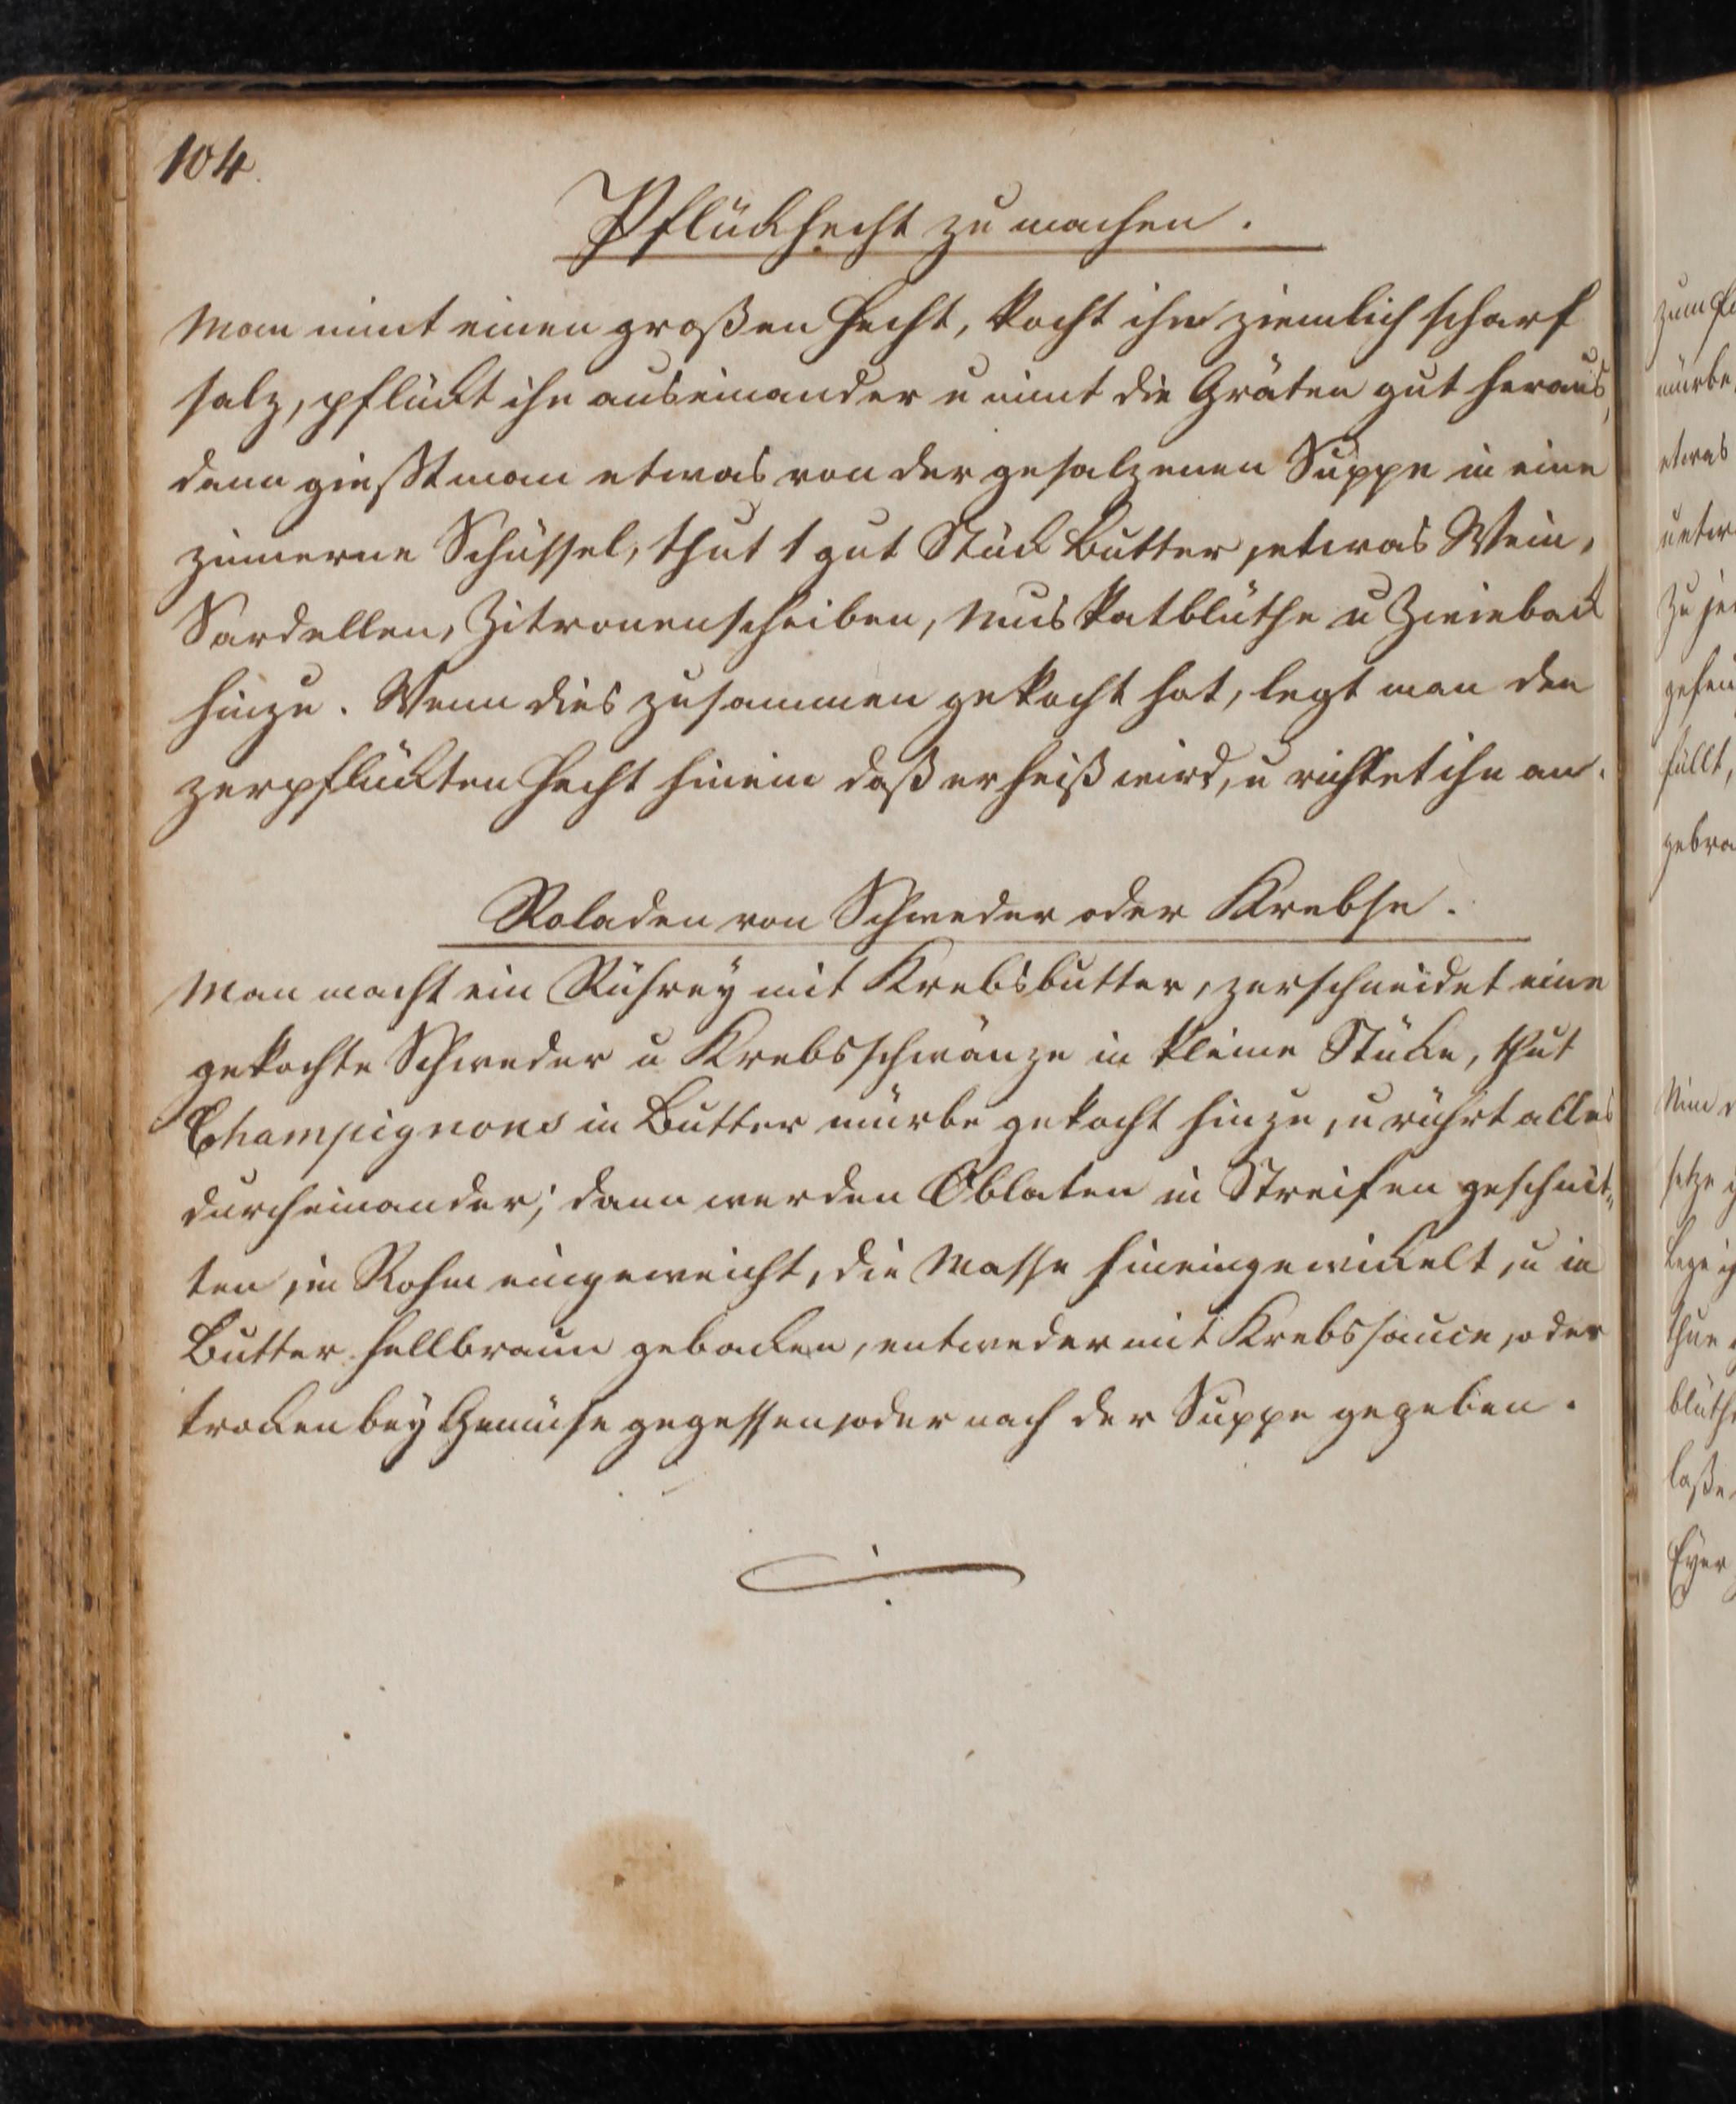 104.
Pflückhecht zu machen.
Man nimt einen großen Hecht, kocht ihn ziemlich scharf
salz, pflückt ihn auseinander u nimt die Gräten gut heraus,
dann gießt man etwas von der gesalzenen Suppe in eine
zinnerne Schüssel, thut 1 gut Stück Butter, etwas Wein,
Sardellen, Zitronenscheiben, Muskatblüthe u Zwieback
hinzu. Wenn dies zusammen gekocht hat, legt man den
zerpflückten Hecht hinein daß er heiß wird, u richtet ihn an.
Roladen von Schweder oder Krebse.
Man macht ein Rührey mit Krebsbutter, zerschneidet eine
gekochte Schweder u Krebsschwänze in kleine Stücke, thut
Champignons in Butter mürbe gekocht hinzu, u rührt alles
durcheinander; dann werden Oblaten in Streifen geschnit„
ten, in Rohm eingeweicht, die Masse hineingewickelt, u in
Butter hellbraun gebacken, entweder mit Krebssauce, oder
trocken bey Gemüse gegessen, oder nach der Suppe gegeben.
mürbe,
etwas
Zu je
füllt,
gebra
setze
Lege
thue
blüthe
laße
Eyer